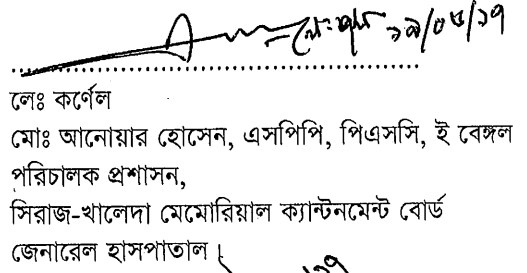 লেঃ কর্ণেল
মোঃ আনোয়ার হোসেন, এসপিপি, পিএসসি, ই বেঙ্গল
পরিচালক প্রশাসন,
সিরাজ-খালেদা মেমোরিয়াল ক্যান্টনমেন্ট বোর্ড
জেনারেল হাসপাতাল।